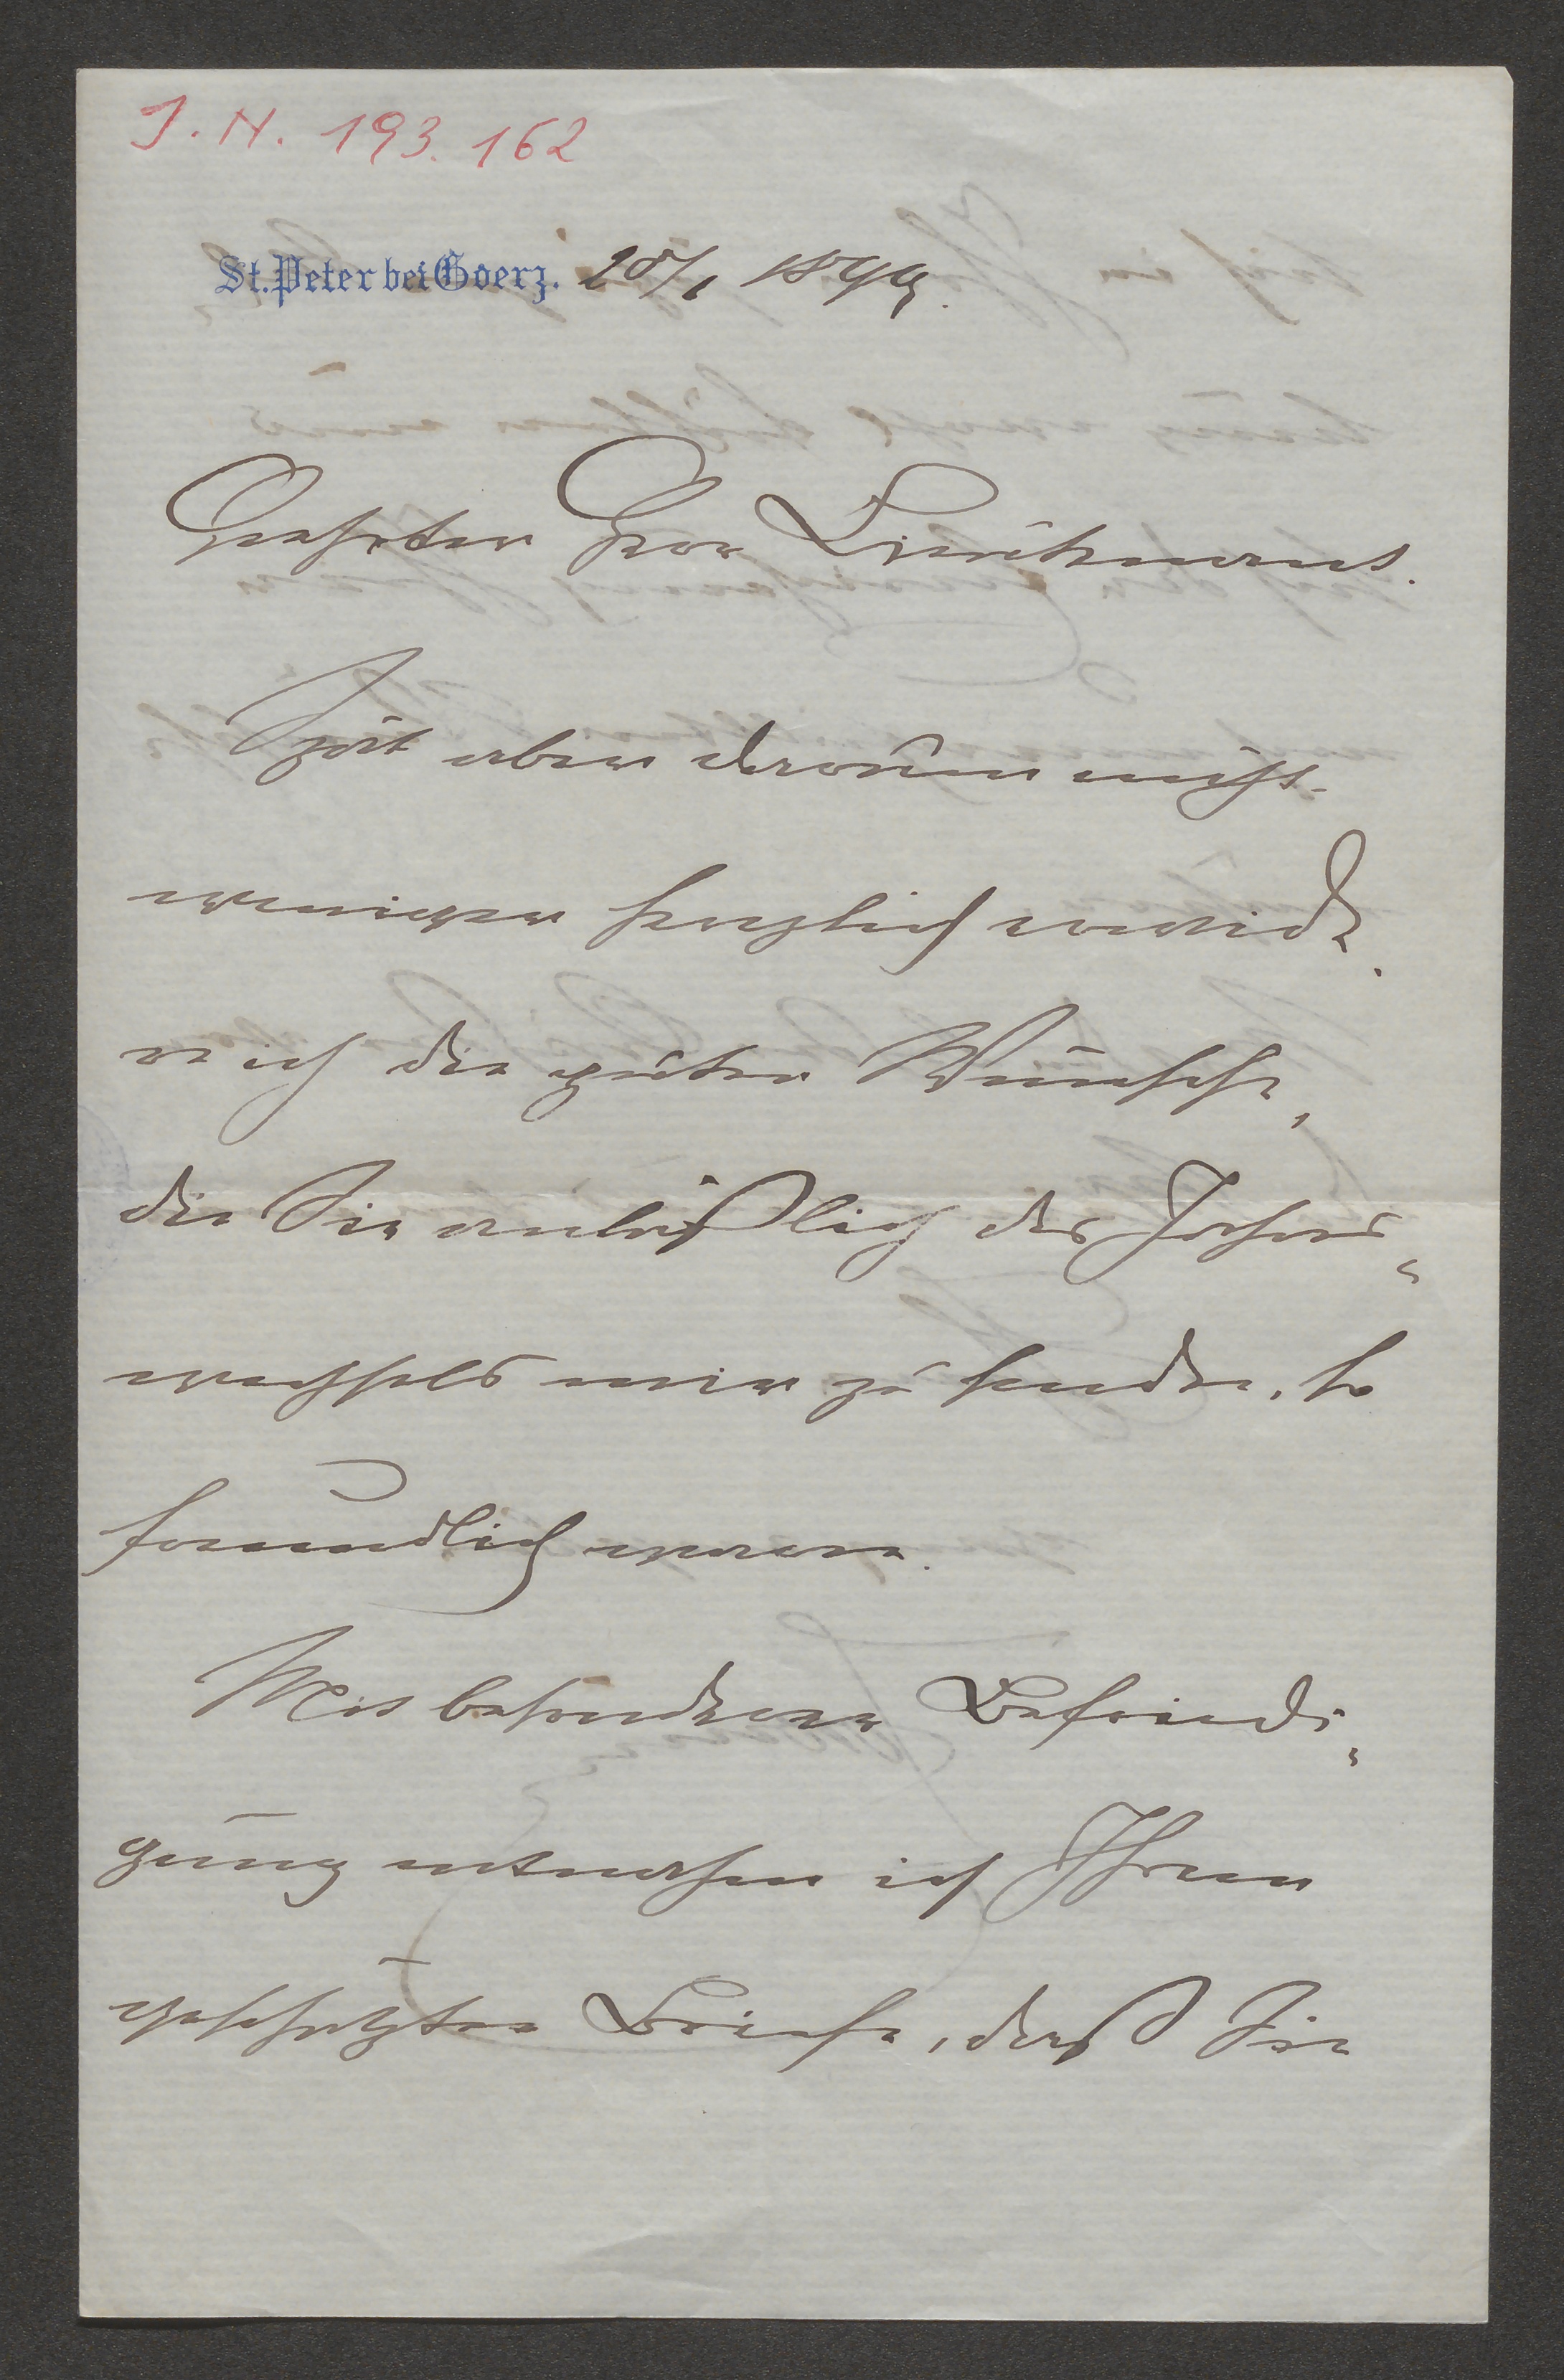 J. N. 193.162
St. Peter bei Goerz. 20/1 1899.
Geehrter Herr
Spät aber darum nicht
weniger herzlich erwide
re ich die guten Wünsche,
die Sie anläßlich des Jahres„
wechsels mir zu senden, so
freundlich waren.
Mit besonderer Befriedi„
gung entnehme ich Ihrem
geschätzten Briefe, daß Sie